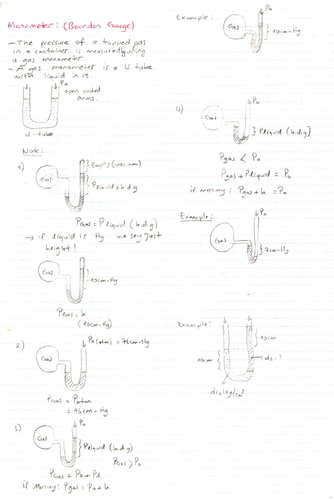 Manometer: (Bourdon Gauge)
- The pressure of a trapped gas
in a container is measured using
a gas manometer
- A gas manometer is a U tube
with liquid in it.
P₀
open ended
arms.
U-tube
Note:
1)
Empty (vacuum)
Gas
Pliquid = h.d.g
Pgas = Pliquid (h.d.g)
→ if liquid is Hg we say just
height!
Gas
10cm-Hg
Pgas = h
(10cm-Hg)
2)
P₀(atm) = 76cm-Hg
Gas
Pgas = Patm
= 76cm-Hg
3)
P₀
Gas
Pliquid (h.d.g)
Pgas > P₀
Pgas = P₀ + Pl
if Mercury: Pgas = P₀ + h
Example:
P₀
Gas
10cm-Hg
4)
P₀
Gas
Pliquid (h.d.g)
Pgas < P₀
Pgas + Pliquid = P₀
if mercury: Pgas + h = P₀
Example:
P₀
Gas
7cm-Hg
Example:
10cm
10cm
d₂ = ?